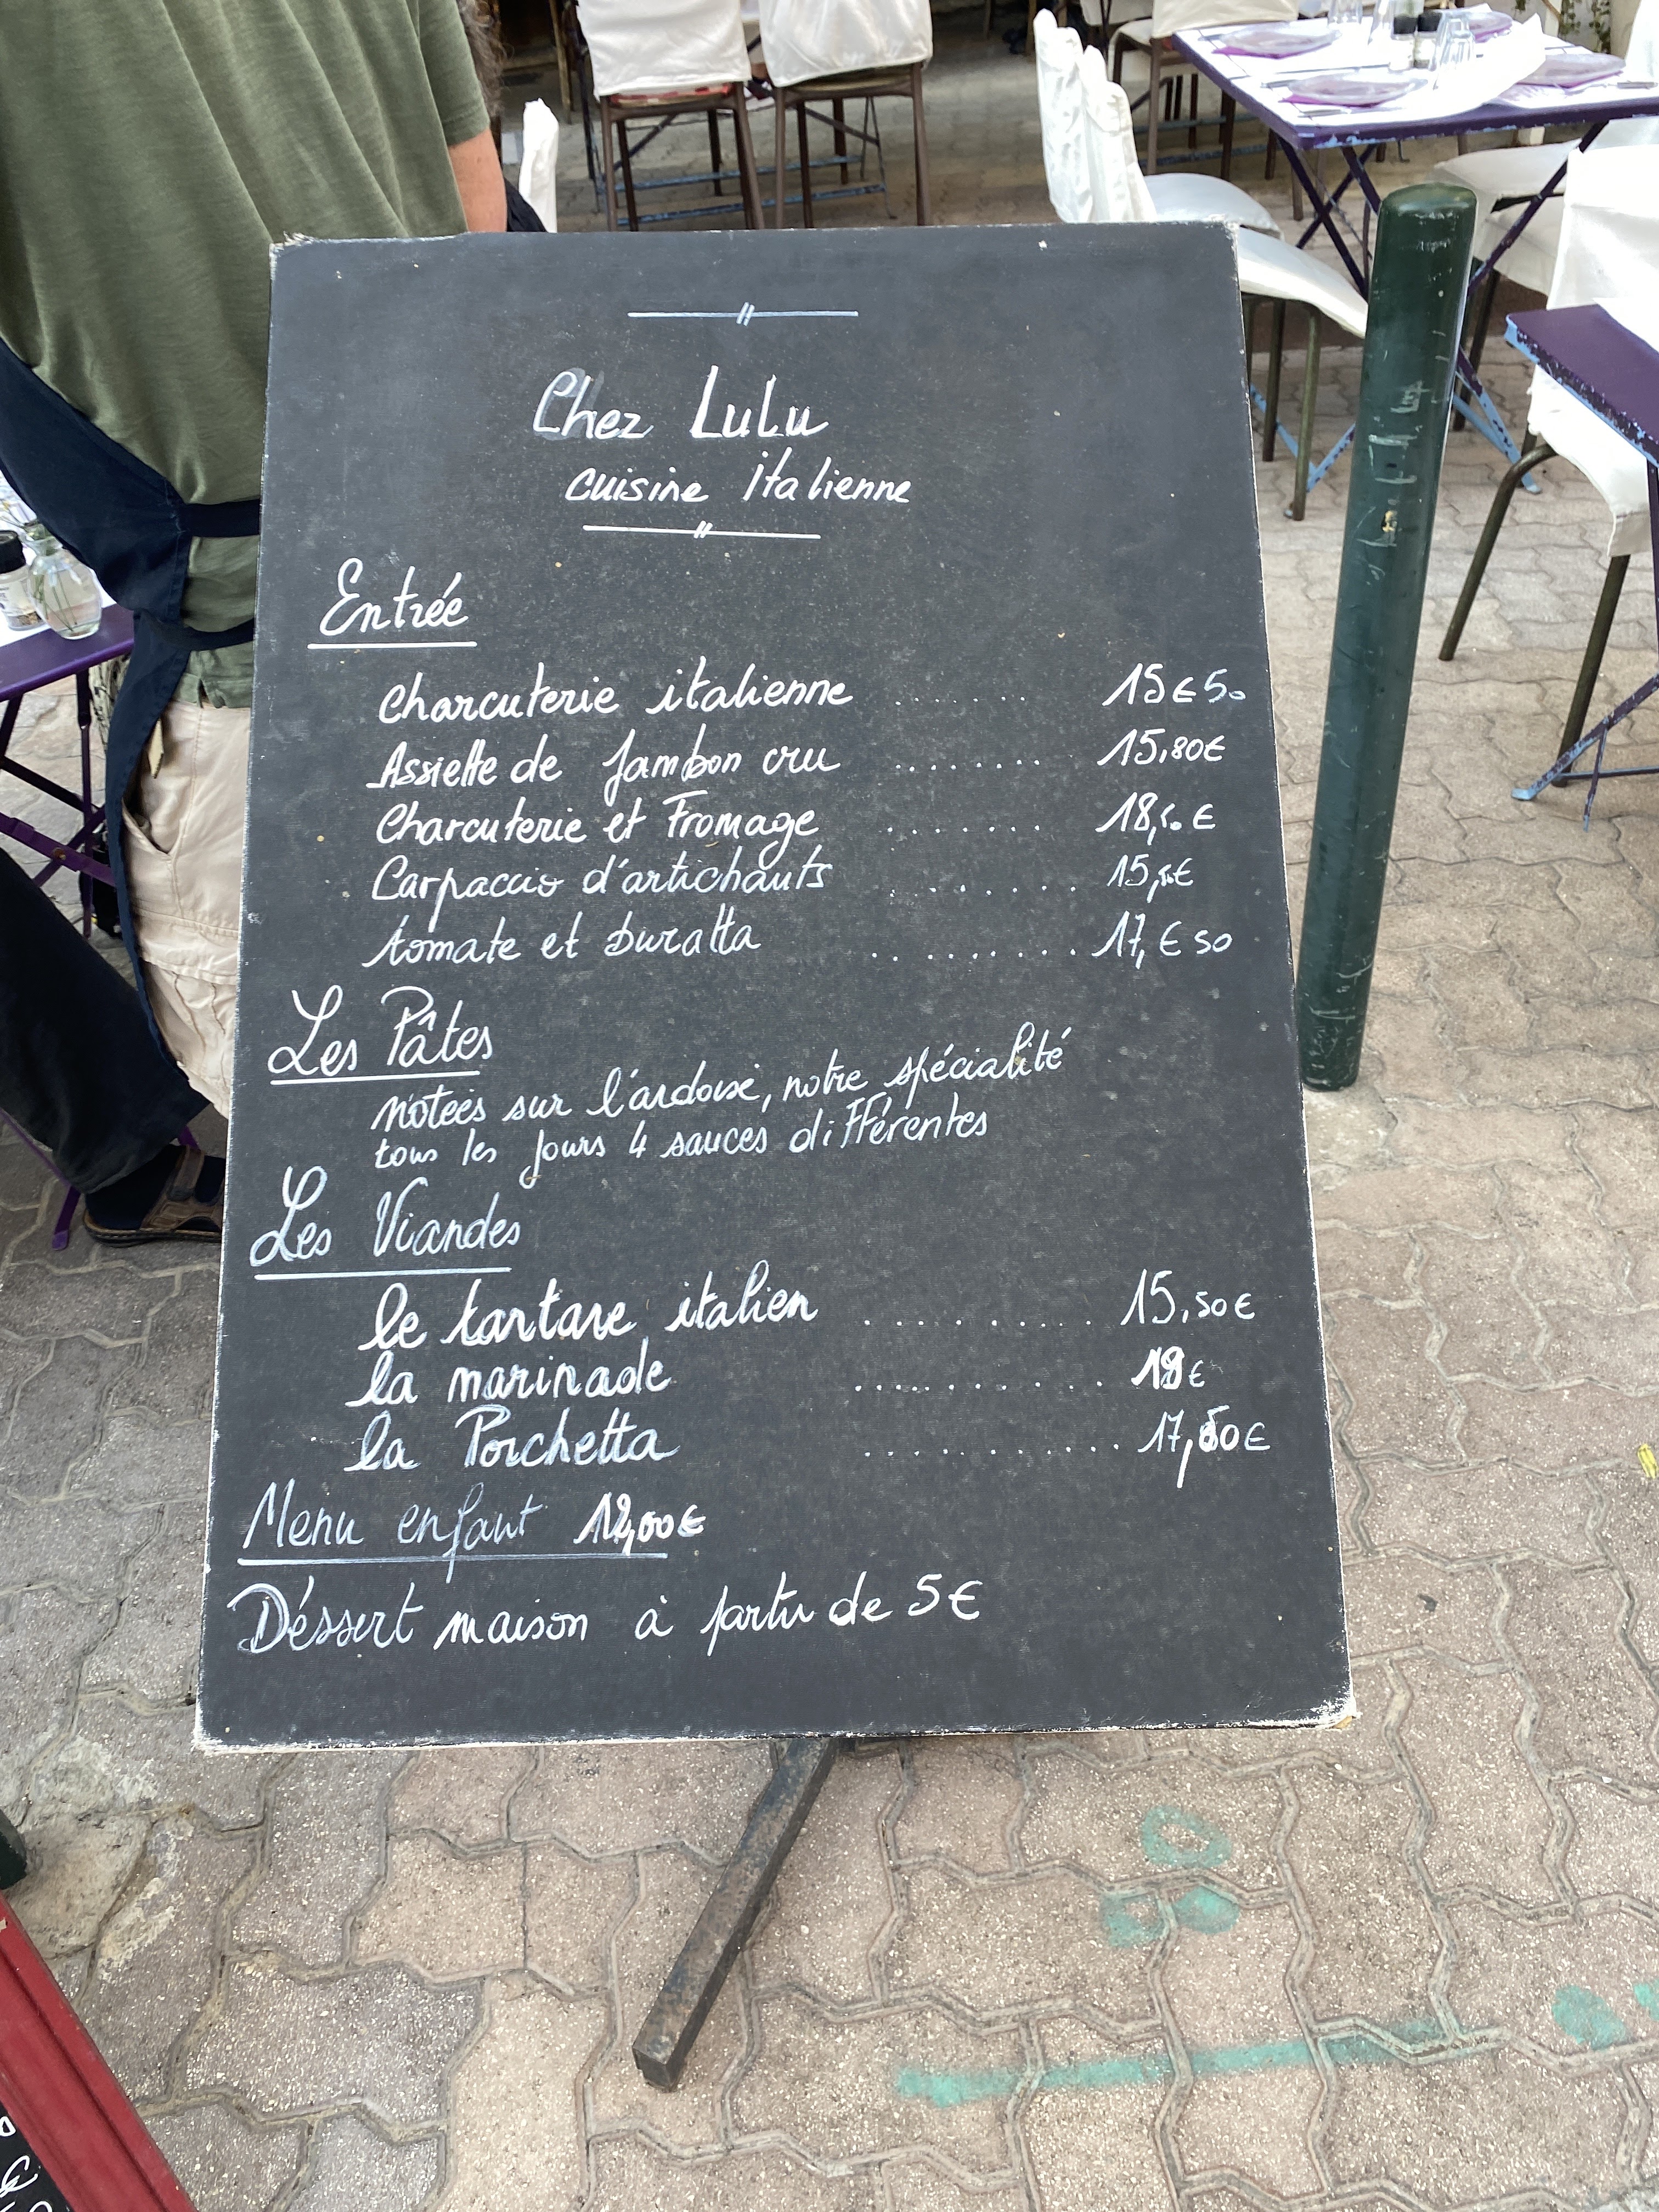 Chez LuLu
cuisine italienne
Entrée
charcuterie italienne ........ 15€50
Assiette de Jambon cru ........ 15,80€
Charcuterie et Fromage ........ 18,50€
Carpaccio d'artichauts ........ 15,50€
tomate et buratta .......... 17,€50
Les Pâtes
notées sur l'ardoise, notre spécialité
tous les jours 4 sauces différentes
Les Viandes
le tartare italien .......... 15,50€
la marinade .......... 18€
la Porchetta ............ 17,50€
Menu enfant 12,00€
Déssert maison à partir de 5€